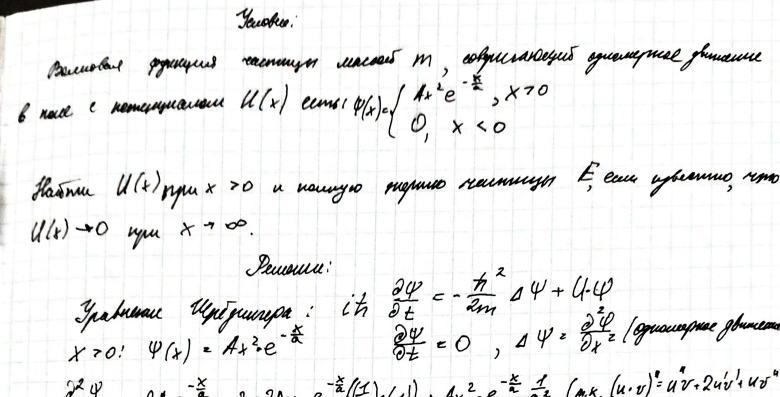 Условие:
Волновая функция частицы массой m, совершающей одномерное движение
в поле с потенциалом U(x) есть: ψ(x)={ Ax²e^(-x/a), x>0
0, x<0
Найти U(x) при x>0 и полную энергию частицы E, если известно, что
U(x)→0 при x→∞.
Решение:
Уравнение Шрёдингера: iħ ∂Ψ/∂t = -ħ²/2m ΔΨ + U·Ψ
x>0: Ψ(x) = Ax²·e^(-x/a) ∂Ψ/∂t = 0, ΔΨ = ∂²Ψ/∂x² (одномерное движение
∂²Ψ (т.к. (u·v)''=u''v+2u'v'+uv''